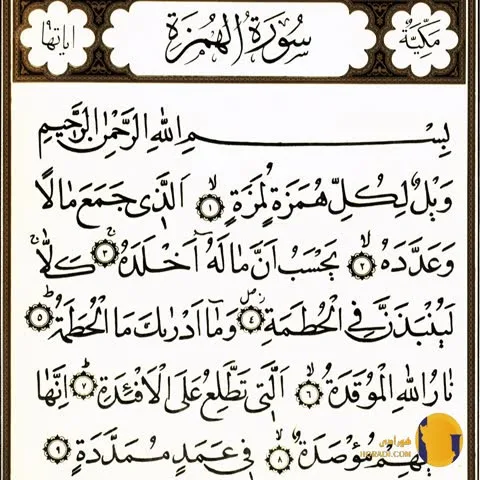 مَكِّيَّةٌ سُورَةُ الْهُمَزَةِ اياتها ٩
بِسْمِ اللهِ الرَّحْمٰنِ الرَّحيمِ
وَيْلٌ لِكُلِّ هُمَزَةٍ لُمَزَةٍۙ ﴿١﴾ اَلَّذى جَمَعَ مالًا
وَعَدَّدَهُۙ ﴿٢﴾ يَحْسَبُ اَنَّ مالَهُٓ اَخْلَدَهُۚ ﴿٣﴾ كَلّاۚ
لَيُنْبَذَنَّ فِى الْحُطَمَةِ ﴿٤﴾ وَمآ اَدْرٰىكَ مَا الْحُطَمَةُؕ ﴿٥﴾
نارُ اللهِ الْمُوقَدَةُۙ ﴿٦﴾ اَلَّتى تَطَّلِعُ عَلَى الْاَفْئِدَةِؕ ﴿٧﴾ اِنَّها
مُؤْصَدَةٌۙ ﴿٨﴾ فى عَمَدٍ مُمَدَّدَةٍ ﴿٩﴾